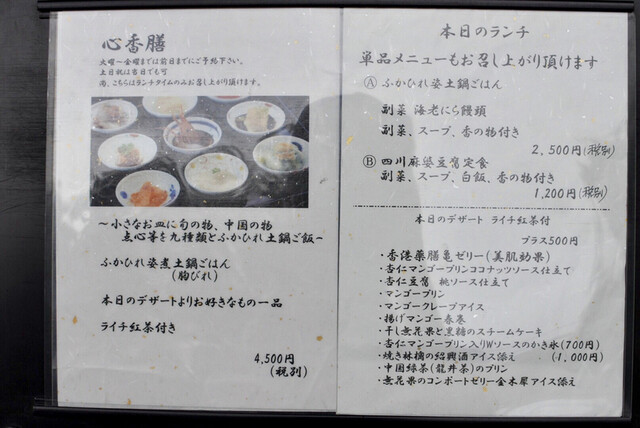 心香膳
火曜～金曜までは前日までにご予約下さい。
土日祝は当日でも可
尚、こちらはランチタイムのみお召し上がり頂けます。
～小さなお皿に旬の物、中国の物
点心等を九種類とふかひれ土鍋ご飯～
ふかひれ姿煮土鍋ごはん
(胸びれ)
本日のデザートよりお好きなもの一品
ライチ紅茶付き
4,500円
(税別)
本日のランチ
単品メニューもお召し上がり頂けます
Ⓐ ふかひれ姿土鍋ごはん
副菜 海老にら饅頭
副菜、スープ、香の物付き
2,500円(税別)
Ⓑ 四川麻婆豆腐定食
副菜、スープ、白飯、香の物付き
1,200円(税別)
本日のデザート ライチ紅茶付
プラス500円
・香港薬膳亀ゼリー(美肌効果)
・杏仁マンゴープリンココナッツソース仕立て
・杏仁豆腐 桃ソース仕立て
・マンゴープリン
・マンゴークレープアイス
・揚げマンゴー春巻
・干し無花果と黒糖のスチームケーキ
・杏仁マンゴープリン入りWソースのかき氷(700円)
・焼き林檎の紹興酒アイス添え (1,000円)
・中国緑茶(龍井茶)のプリン
・無花果のコンポートゼリー金木犀アイス添え